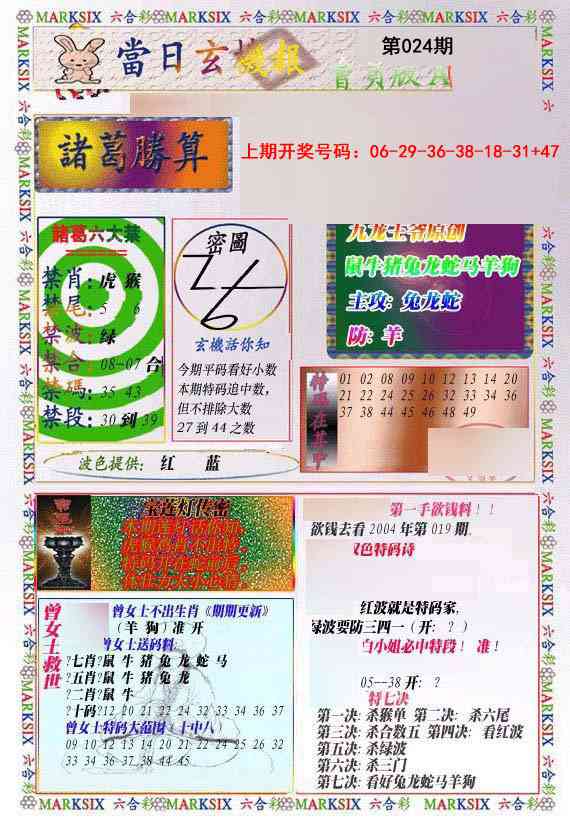 MARKSIX 六合彩 MARKSIX 六合彩 MARKSIX 六合彩 MARKSIX 六合彩 MARKSIX
當日玄機报
第024期
諸葛勝算
上期开奖号码：06-29-36-38-18-31+47
諸葛六大禁
禁肖：虎 猴
禁尾：5 6
禁波：绿
禁合：08-07 合
禁碼：35 43
禁段：30 到 39
密圖
玄機活你知
今期平码看好小数
本期特码追中数，
但不排除大数
27 到 44 之数
九龙王爷原创
鼠牛猪兔龙蛇马羊狗
主攻: 兔龙蛇
防: 羊
特码在其中
01 02 08 09 10 12 13 14 20
21 22 25 26 32 33 34 36
37 38 44 45 46 48 49
波色提供： 红 蓝
宝莲灯传密
曾女士救世
曾女士不出生肖《期期更新》
（羊 狗）准 开
曾女士送码料:
?七肖?鼠 牛 猪 兔 龙 蛇 马
?五肖?鼠 牛 猪 兔 龙
?二肖?鼠 牛
?十码?12 20 21 22 24 32 33 34 36 37
曾女士特码大范围（十中八）
09 10 12 13 14 20 21 22 24 25 26 32
33 34 36 37 38 44 45
第一手欲钱料！！
欲钱去看 2004 年第 019 期.
双色特码诗
红波就是特码家,
绿波要防三四一 (开: ? )
白小姐必中特段！ 准！
05--38 开: ?
特七决
第一决: 杀猴单 第二决: 杀六尾
第三决: 杀合数五 第四决: 看红波
第五决: 杀绿波
第六决: 杀三门
第七决: 看好兔龙蛇马羊狗
MARKSIX 六合彩 MARKSIX 六合彩 MARKSIX 六合彩 MARKSIX 六合彩 MARKSIX